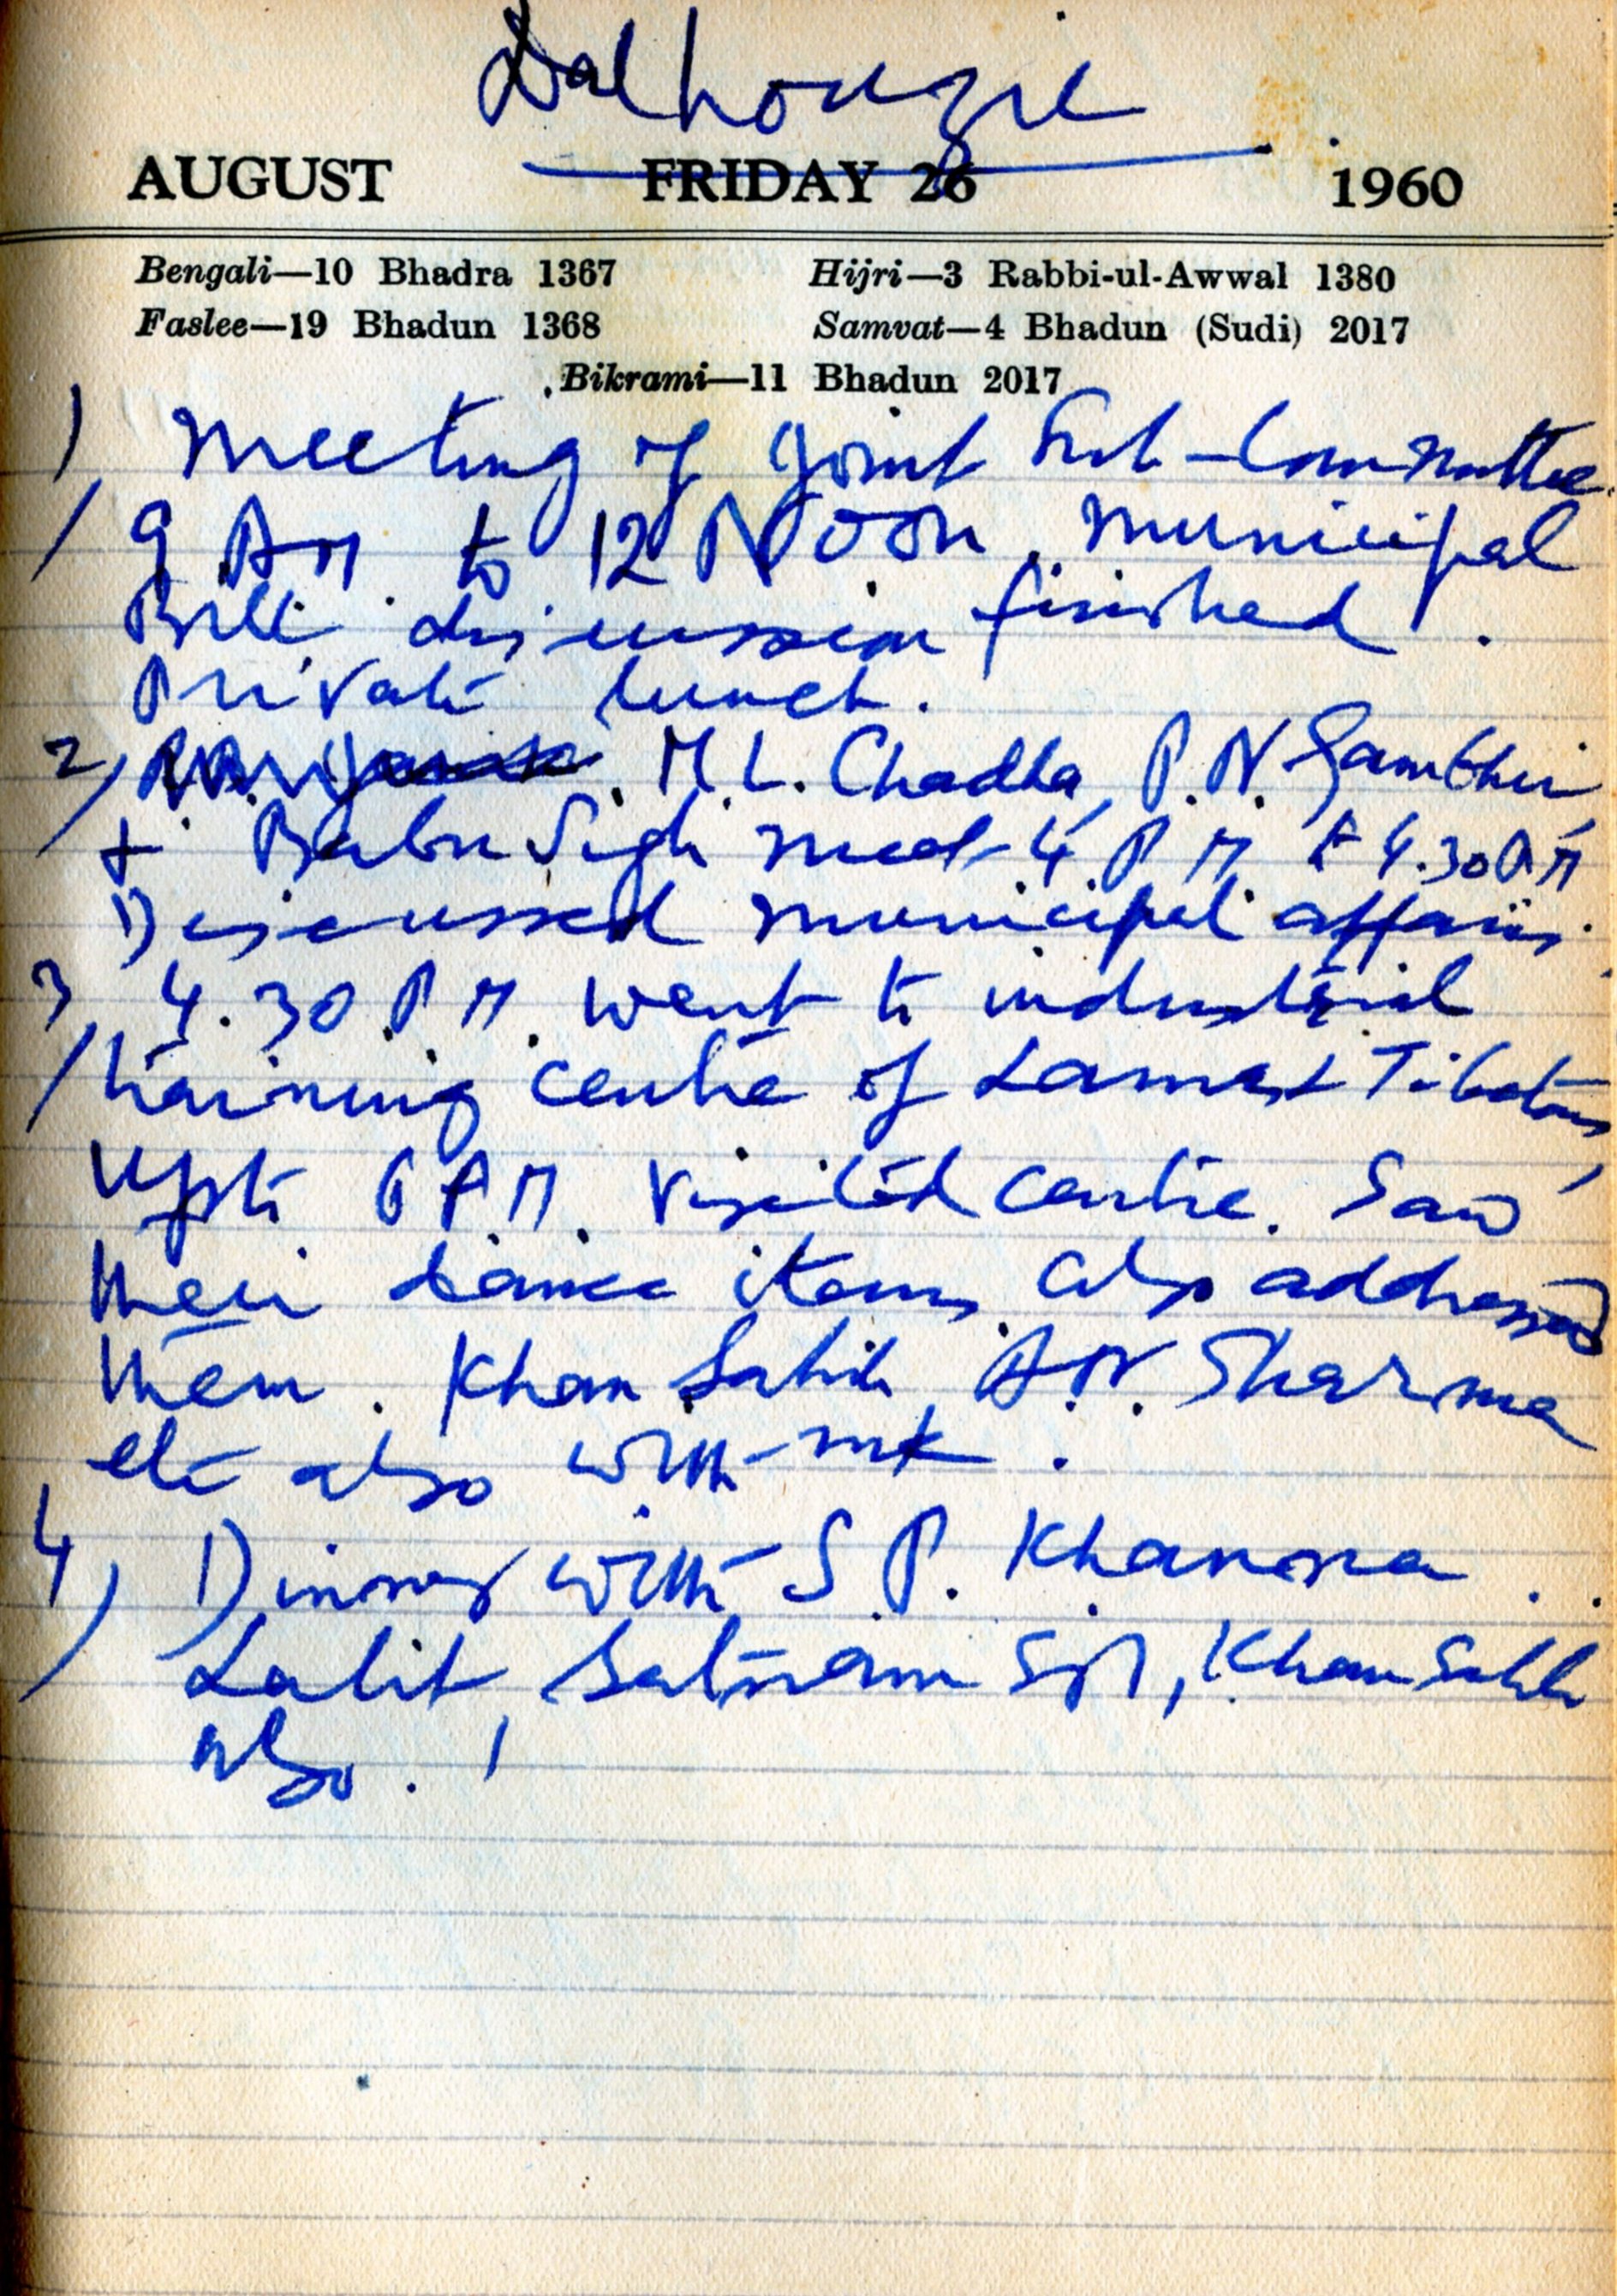 Dalhouzie
AUGUST FRIDAY 26 1960
Bengali—10 Bhadra 1367 Hijri—3 Rabbi-ul-Awwal 1380
Faslee—19 Bhadun 1368 Samvat—4 Bhadun (Sudi) 2017
Bikrami—11 Bhadun 2017
1) Meeting of Joint Sub-Committee
9 AM to 12 Noon. Municipal
Bill discussion finished.
Private lunch.
2) M.L. Chadha, P.N. Gambhir
+ Babu Singh met 4 P.M. to 4.30 P.M
Discussed municipal affairs.
3) 4.30 P.M. went to industrial
training centre of Lamas & Tibetans
upto 6 P.M. Visited centre. Saw
their dance items, also addressed
them. Khan Sahib, A.N. Sharma
etc also with me.
4) Dinner with S.P. Khanna.
Lalit, Satnam, Khan Sahib
also.